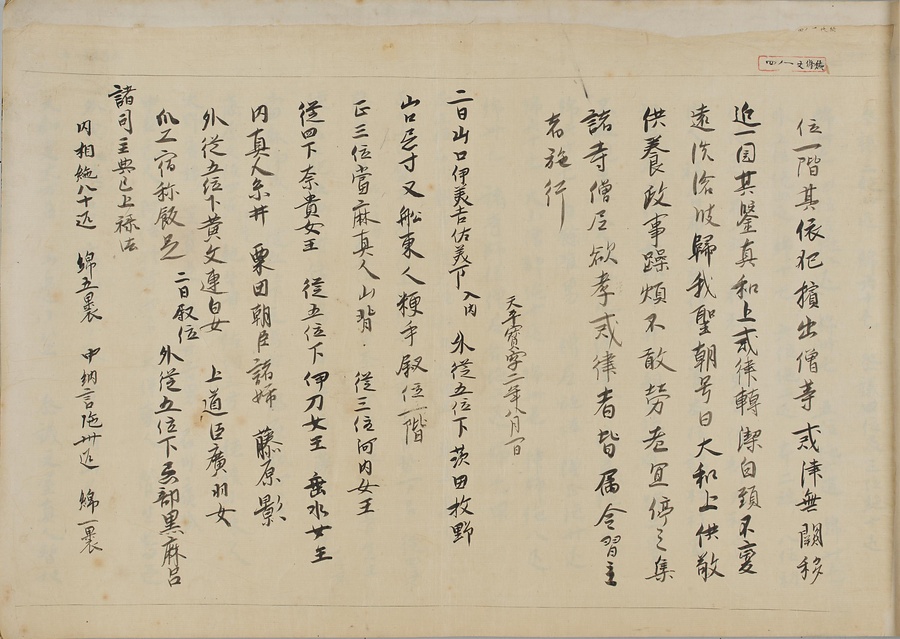 位一階其依犯擯出僧等戒律無闕移
近一国其鑒真和上戒律轉潔白頭不変
遠渉滄波歸我聖朝号曰大和上供敬
供養政事躁煩不敢労老宜停之集
諸寺僧尼欲孝戒律者皆属令習主
者施行
天平寳字二年八月一日
二日山口伊美吉佐美下 入内 外従五位下茨田牧野
山口忌寸又舩東人粳手叙位一階
正三位當麻真人山背 従三位河内女王
従四下奈貴女王 従五位下伊刀女王 垂水女王
内真人糸井 粟田朝臣諸姉 藤原影
外従五位下黄文連白女 上道臣廣羽女
爪工宿祢飯足 二日叙位 外従五位下忌部黒麻呂
諸司主典已上禄法
内相絁八十疋 綿五畏 中納言絁卌疋 綿一畏